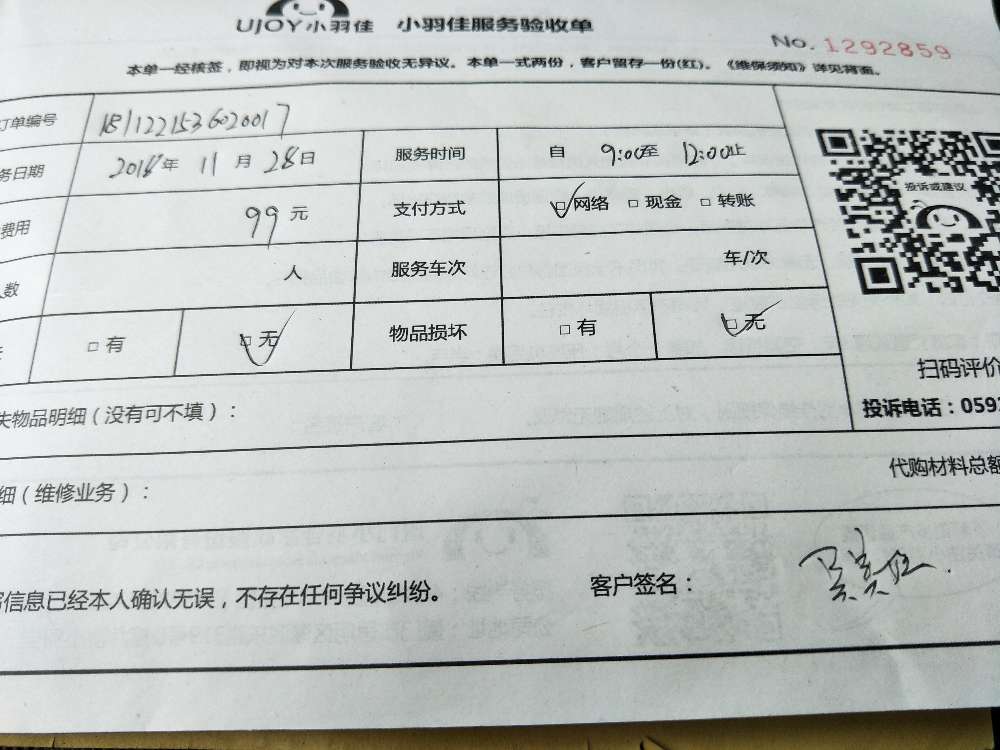 UJOY小羽佳 小羽佳服务验收单
No. 1292859
本单一经核签，即视为对本次服务验收无异议。本单一式两份，客户留存一份(红)。《维保须知》详见背面。
订单编号 1811221536020017
务日期 2018年 11月 28日 服务时间 自 9:00至 12:00止
费用 99元 支付方式 网络 □ 现金 □ 转账
数 人 服务车次 车/次
□ 有 □ 无 物品损坏 □ 有 □ 无
投诉或建议
扫码评价
失物品明细（没有可不填）：
投诉电话：059
细（维修业务）： 代购材料总额
信息已经本人确认无误，不存在任何争议纠纷。 客户签名：